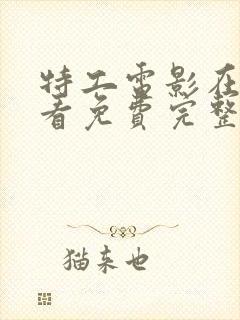 特工雷影在
看免费完整
猫来也